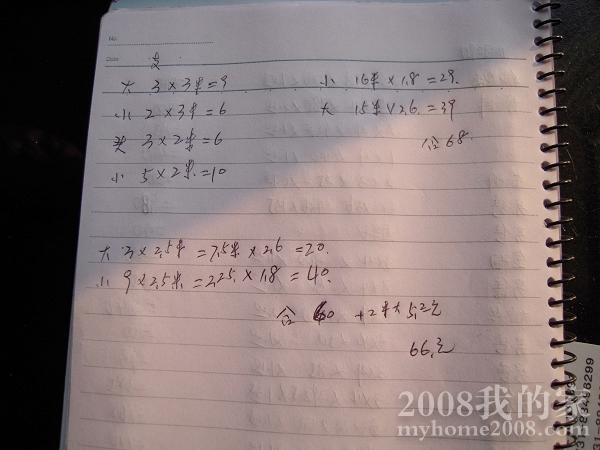 No:
Date:
支
大 3×3米=9
小 2×3米=6
大 3×2米=6
小 5×2米=10
小 16米×1.8=29.
大 15米×2.6=39
合68
大 3×2.5米=7.5米×2.6=20.
小 9×2.5米=22.5×1.8=40.
合 60 +2米×5.2元
66元
2008我的家
myhome2008.com